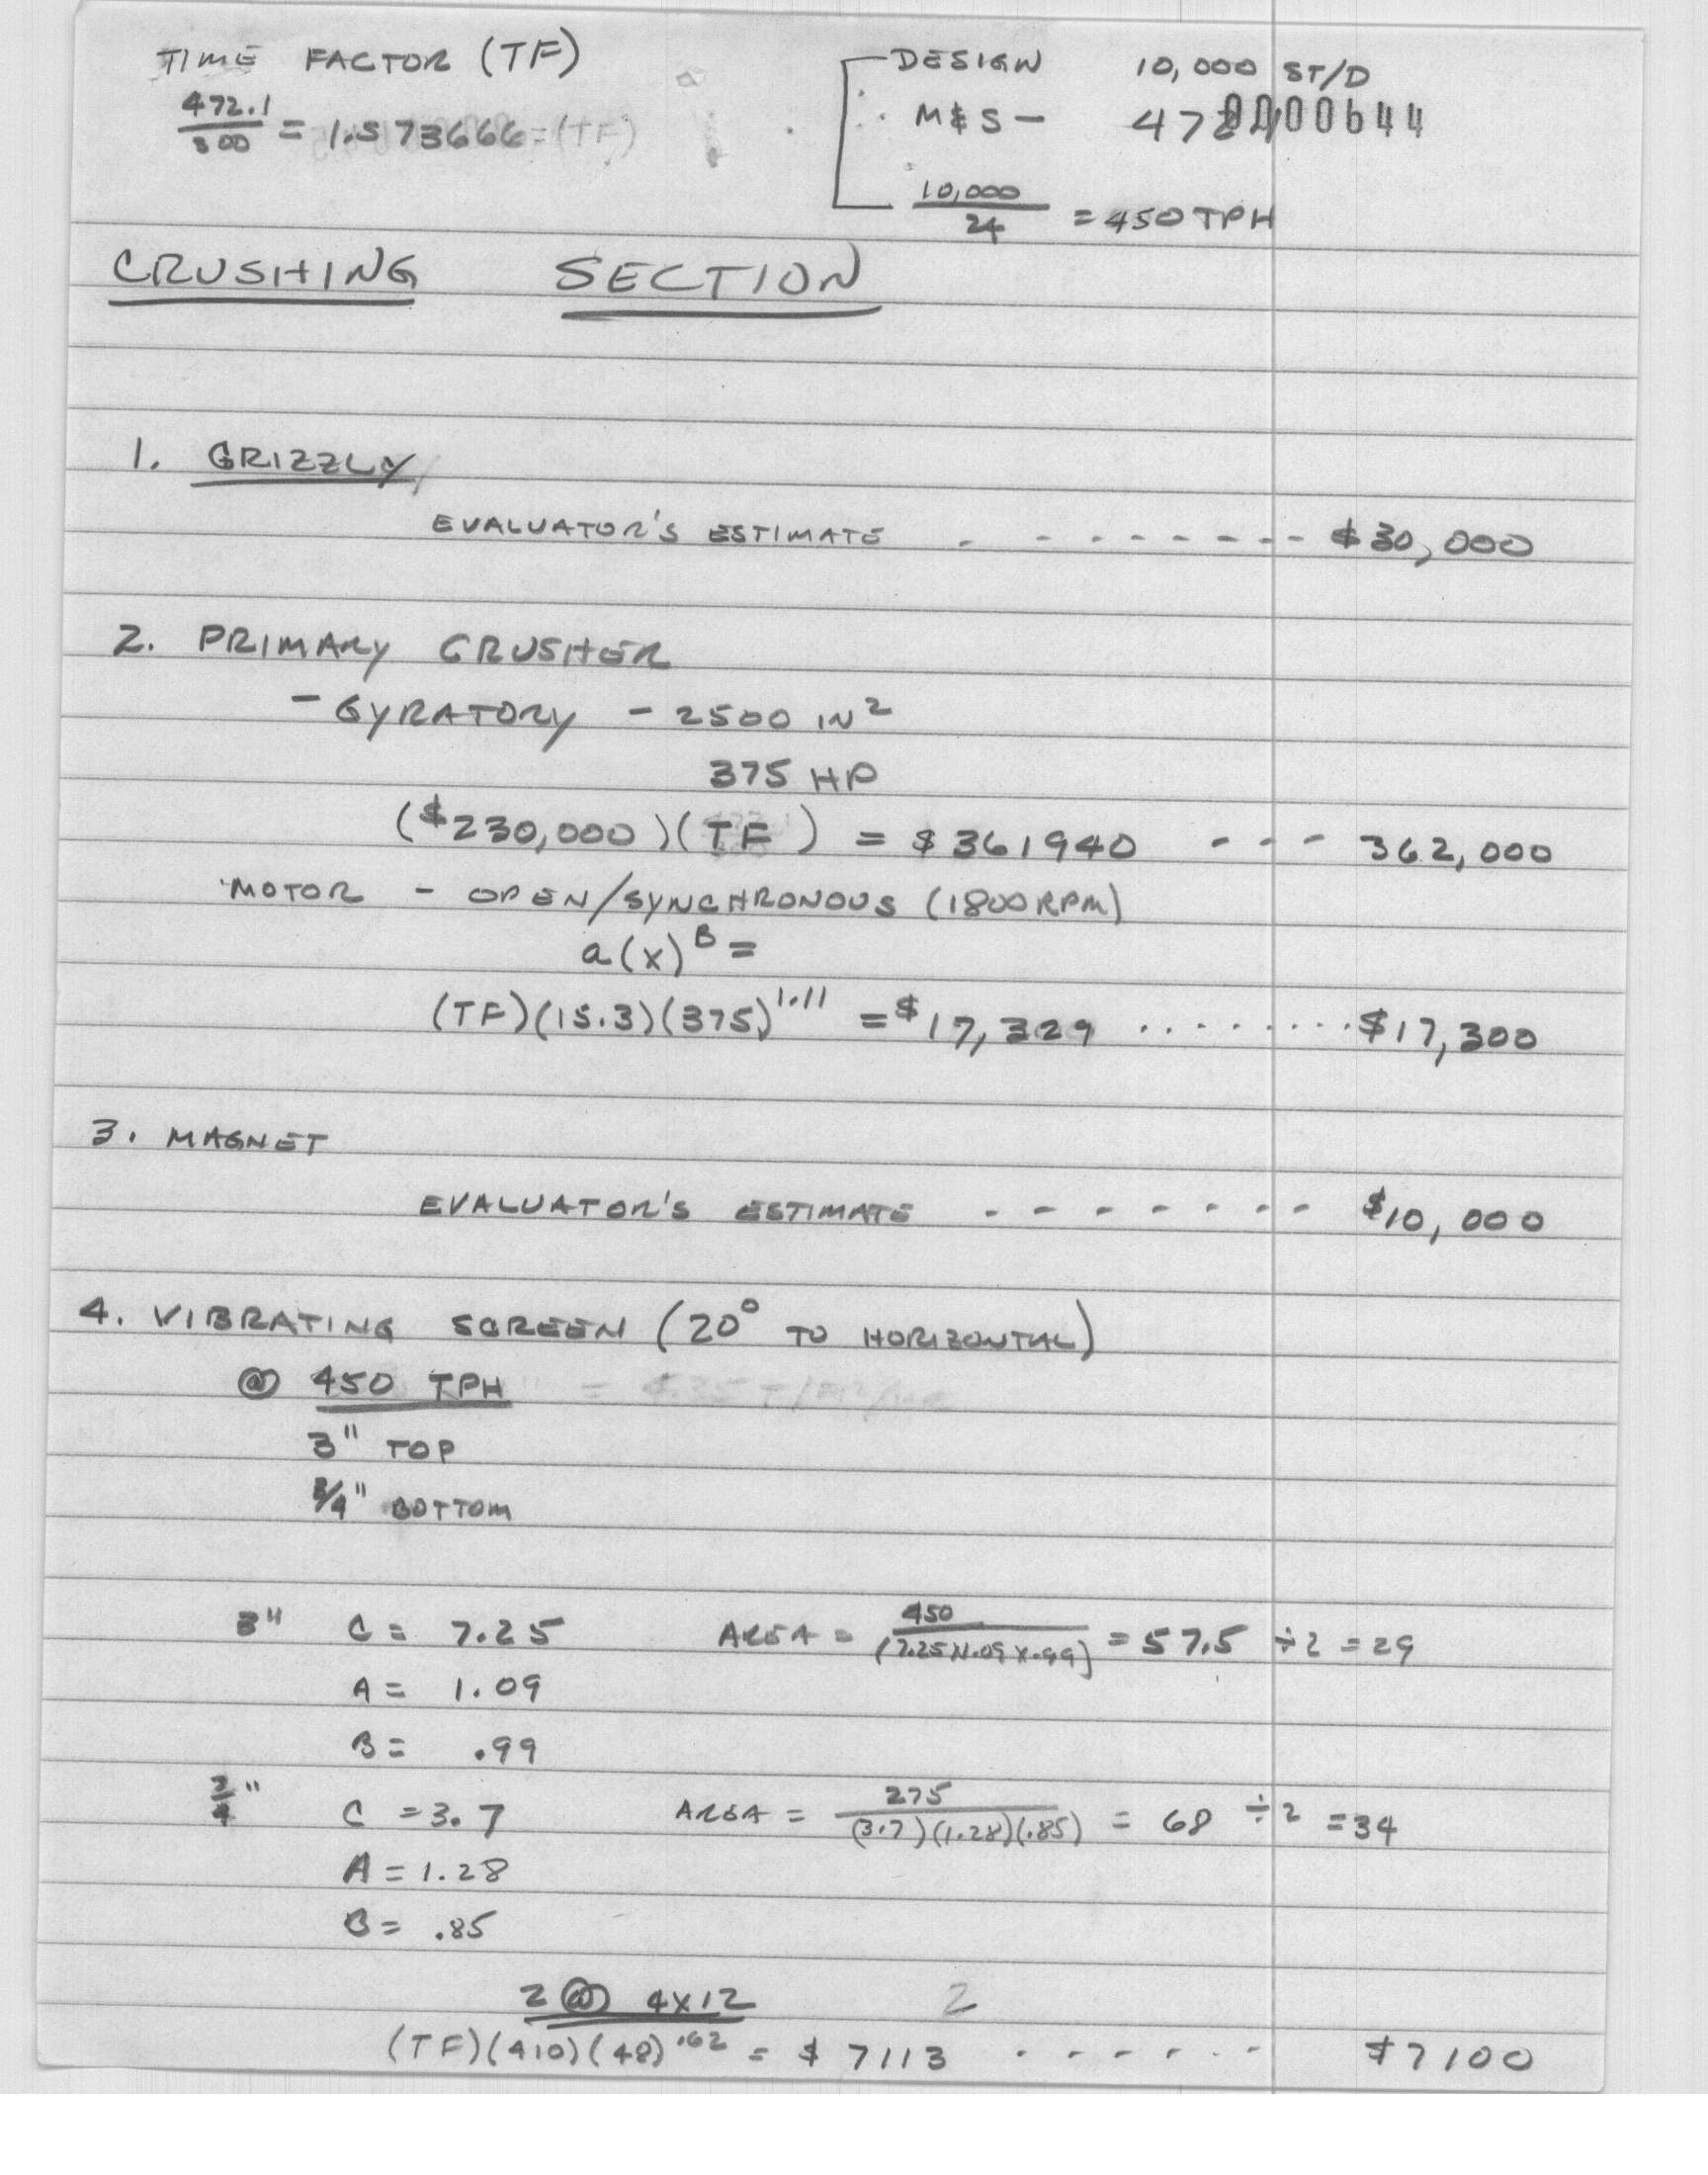 TIME FACTOR (TF)
472.1 / 300 = 1.573666 = (TF)
DESIGN 10,000 ST/D
M&S - 472.1
00000644
10,000 / 24 = 450 TPH
CRUSHING SECTION
1. GRIZZLY
EVALUATOR'S ESTIMATE . - - - - - - - $30,000
2. PRIMARY CRUSHER
- GYRATORY - 2500 IN²
375 HP
($230,000)(TF) = $361940 - - - 362,000
MOTOR - OPEN/SYNCHRONOUS (1800RPM)
a(x)^B =
(TF)(15.3)(375)^1.11 = $17,329 ........ $17,300
3. MAGNET
EVALUATOR'S ESTIMATE - - - - - - - $10,000
4. VIBRATING SCREEN (20° TO HORIZONTAL)
@ 450 TPH
3" TOP
3/4" BOTTOM
3" C = 7.25 AREA = 450 / (7.25)(1.09)(.99) = 57.5 ÷2 = 29
A = 1.09
B = .99
3/4" C = 3.7 AREA = 275 / (3.7)(1.28)(.85) = 68 ÷2 = 34
A = 1.28
B = .85
2 @ 4x12 2
(TF)(410)(48)^.62 = $ 7113 - - - - - - $7100